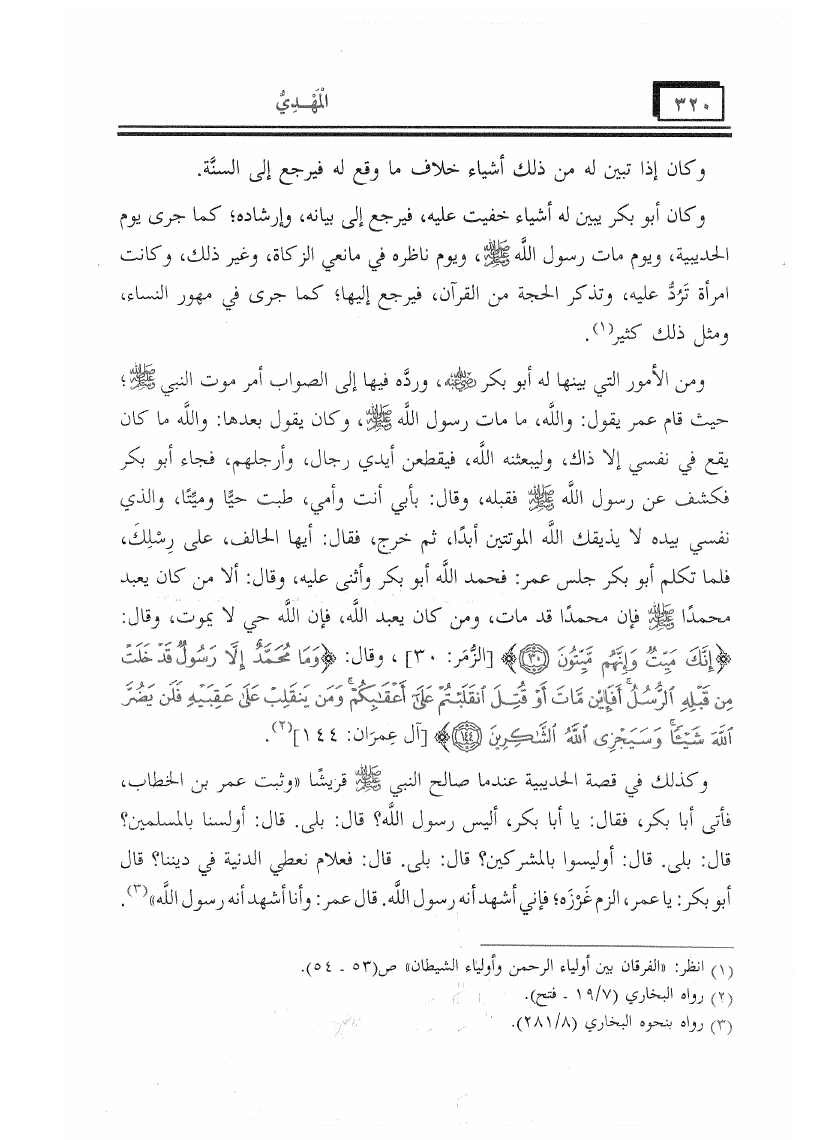 ٣٢٠
المَهْـدِيُّ
وكان إذا تبين له من ذلك أشياء خلاف ما وقع له فيرجع إلى السنَّة.
وكان أبو بكر يبين له أشياء خفيت عليه، فيرجع إلى بيانه، وإرشاده؛ كما جرى يوم
الحديبية، ويوم مات رسول اللَّه ﷺ، ويوم ناظره في مانعي الزكاة، وغير ذلك، وكانت
امرأة تَرُدُّ عليه، وتذكر الحجة من القرآن، فيرجع إليها؛ كما جرى في مهور النساء،
ومثل ذلك كثير(١).
ومن الأمور التي بينها له أبو بكر رضي الله عنه، وردَّه فيها إلى الصواب أمر موت النبي ﷺ؛
حيث قام عمر يقول: واللَّه، ما مات رسول اللَّه ﷺ، وكان يقول بعدها: واللَّه ما كان
يقع في نفسي إلا ذاك، وليبعثنه اللَّه، فيقطعن أيدي رجال، وأرجلهم، فجاء أبو بكر
فكشف عن رسول اللَّه ﷺ فقبله، وقال: بأبي أنت وأمي، طبت حيًّا وميِّتًا، والذي
نفسي بيده لا يذيقك اللَّه الموتتين أبدًا، ثم خرج، فقال: أيها الحالف، على رِسْلِكَ،
فلما تكلم أبو بكر جلس عمر: فحمد اللَّه أبو بكر وأثنى عليه، وقال: ألا من كان يعبد
محمدًا ﷺ فإن محمدًا قد مات، ومن كان يعبد اللَّه، فإن اللَّه حي لا يموت، وقال:
﴿إِنَّكَ مَيِّتٌ وَإِنَّهُم مَّيِّتُونَ ٣٠﴾ [الزُّمَر: ٣٠]، وقال: ﴿وَمَا مُحَمَّدٌ إِلَّا رَسُولٌ قَدْ خَلَتْ
مِن قَبْلِهِ الرُّسُلُ أَفَإِيْن مَّاتَ أَوْ قُتِلَ انقَلَبْتُمْ عَلَىٰ أَعْقَٰبِكُمْ وَمَن يَنقَلِبْ عَلَىٰ عَقِبَيْهِ فَلَن يَضُرَّ
اللَّهَ شَيْـًٔا وَسَيَجْزِى اللَّهُ الشَّٰكِرِينَ ١٤٤﴾ [آل عِمرَان: ١٤٤](٢).
وكذلك في قصة الحديبية عندما صالح النبي ﷺ قريشًا «وثبت عمر بن الخطاب،
فأتى أبا بكر، فقال: يا أبا بكر، أليس رسول اللَّه؟ قال: بلى. قال: أولسنا بالمسلمين؟
قال: بلى. قال: أوليسوا بالمشركين؟ قال: بلى. قال: فعلام نعطي الدنية في ديننا؟ قال
أبو بكر: يا عمر، الزم غَرْزَه؛ فإني أشهد أنه رسول اللَّه. قال عمر: وأنا أشهد أنه رسول اللَّه»(٣).
(١) انظر: «الفرقان بين أولياء الرحمن وأولياء الشيطان» ص(٥٣ ـ ٥٤).
(٢) رواه البخاري (١٩/٧ ـ فتح).
(٣) رواه بنحوه البخاري (٢٨١/٨).